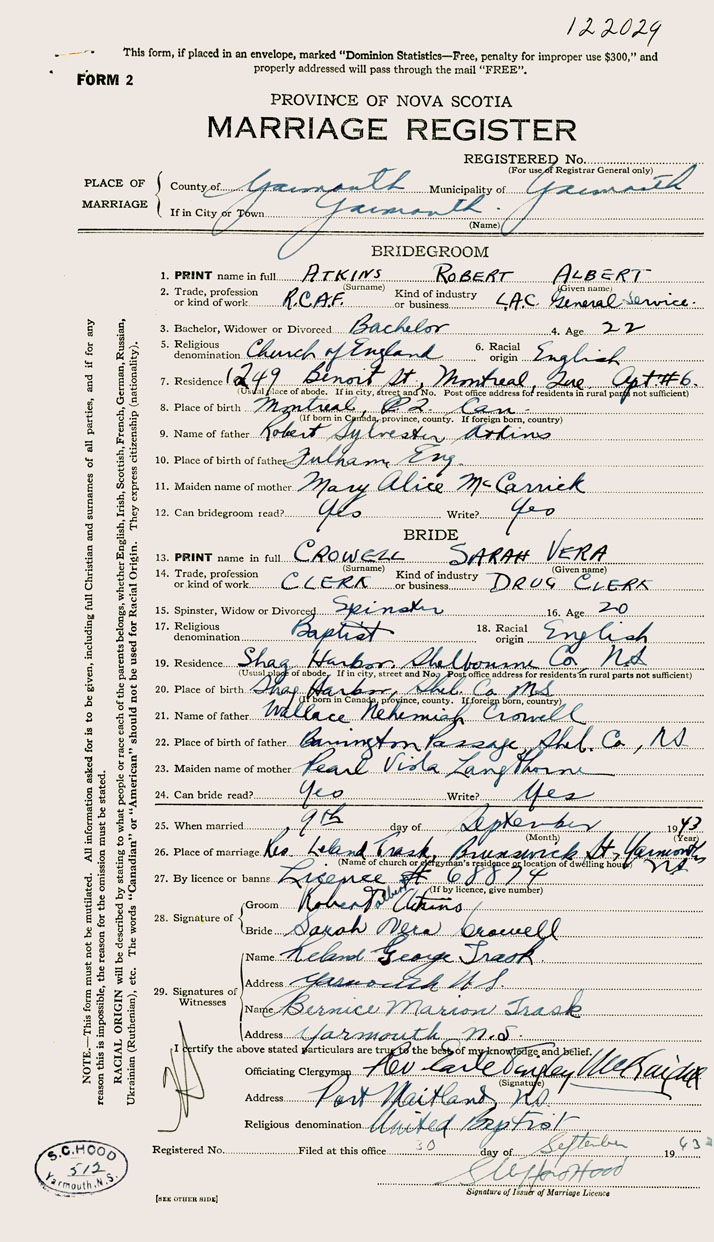 122029
This form, if placed in an envelope, marked "Dominion Statistics—Free, penalty for improper use $300," and
properly addressed will pass through the mail "FREE".
FORM 2
PROVINCE OF NOVA SCOTIA
MARRIAGE REGISTER
REGISTERED No.
(For use of Registrar General only)
PLACE OF MARRIAGE
County of Yarmouth Municipality of Yarmouth
If in City or Town Yarmouth
(Name)
BRIDEGROOM
1. PRINT name in full ATKINS ROBERT ALBERT
(Surname) (Given name)
2. Trade, profession or kind of work R.C.A.F. Kind of industry or business L.A.C. General Service.
3. Bachelor, Widower or Divorced Bachelor 4. Age 22
5. Religious denomination Church of England 6. Racial origin English
7. Residence 1249 Benoit St, Montreal, Que. Apt #6.
(Usual place of abode. If in city, street and No. Post office address for residents in rural parts not sufficient)
8. Place of birth Montreal, P2 Can.
(If born in Canada, province, county. If foreign born, country)
9. Name of father Robert Sylvester Atkins
10. Place of birth of father Fulham, Eng.
11. Maiden name of mother Mary Alice McCarrick
12. Can bridegroom read? Yes Write? Yes
BRIDE
13. PRINT name in full CROWELL SARAH VERA
(Surname) (Given name)
14. Trade, profession or kind of work CLERK Kind of industry or business DRUG CLERK
15. Spinster, Widow or Divorced Spinster 16. Age 20
17. Religious denomination Baptist 18. Racial origin English
19. Residence Shag Harbor, Shelbourne Co, NS
(Usual place of abode. If in city, street and No. Post office address for residents in rural parts not sufficient)
20. Place of birth Shag Harbor, Shel. Co NS
(If born in Canada, province, county. If foreign born, country)
21. Name of father Wallace Nehemiah Crowell
22. Place of birth of father Barrington Passage, Shel. Co, NS
23. Maiden name of mother Pearl Viola Langthorne
24. Can bride read? Yes Write? Yes
25. When married 9th day of September 1943
(Month) (Year)
26. Place of marriage Res. Leland Trask, Brunswick St, Yarmouth NS
(Name of church or clergyman's residence or location of dwelling house)
27. By licence or banns Licence # 68874
(If by licence, give number)
28. Signature of
Groom Robert Albert Atkins
Bride Sarah Vera Crowell
29. Signatures of Witnesses
Name Leland George Trask
Address Yarmouth N.S.
Name Bernice Marion Trask
Address Yarmouth N.S.
I certify the above stated particulars are true to the best of my knowledge and belief.
Officiating Clergyman Rev Earle
(Signature)
Address Port Maitland, N.S.
Religious denomination United Baptist
Registered No. Filed at this office 30 day of September 1943
Signature of Issuer of Marriage Licence
S.C. HOOD
512
Yarmouth, N.S.
[SEE OTHER SIDE]
NOTE.—This form must not be mutilated. All information asked for is to be given, including full Christian and surnames of all parties, and if for any
reason this is impossible, the reason for the omission must be stated.
RACIAL ORIGIN will be described by stating to what people or race each of the parents belongs, whether English, Irish, Scottish, French, German, Russian,
Ukrainian (Ruthenian), etc. The words "Canadian" or "American" should not be used for Racial Origin. They express citizenship (nationality).